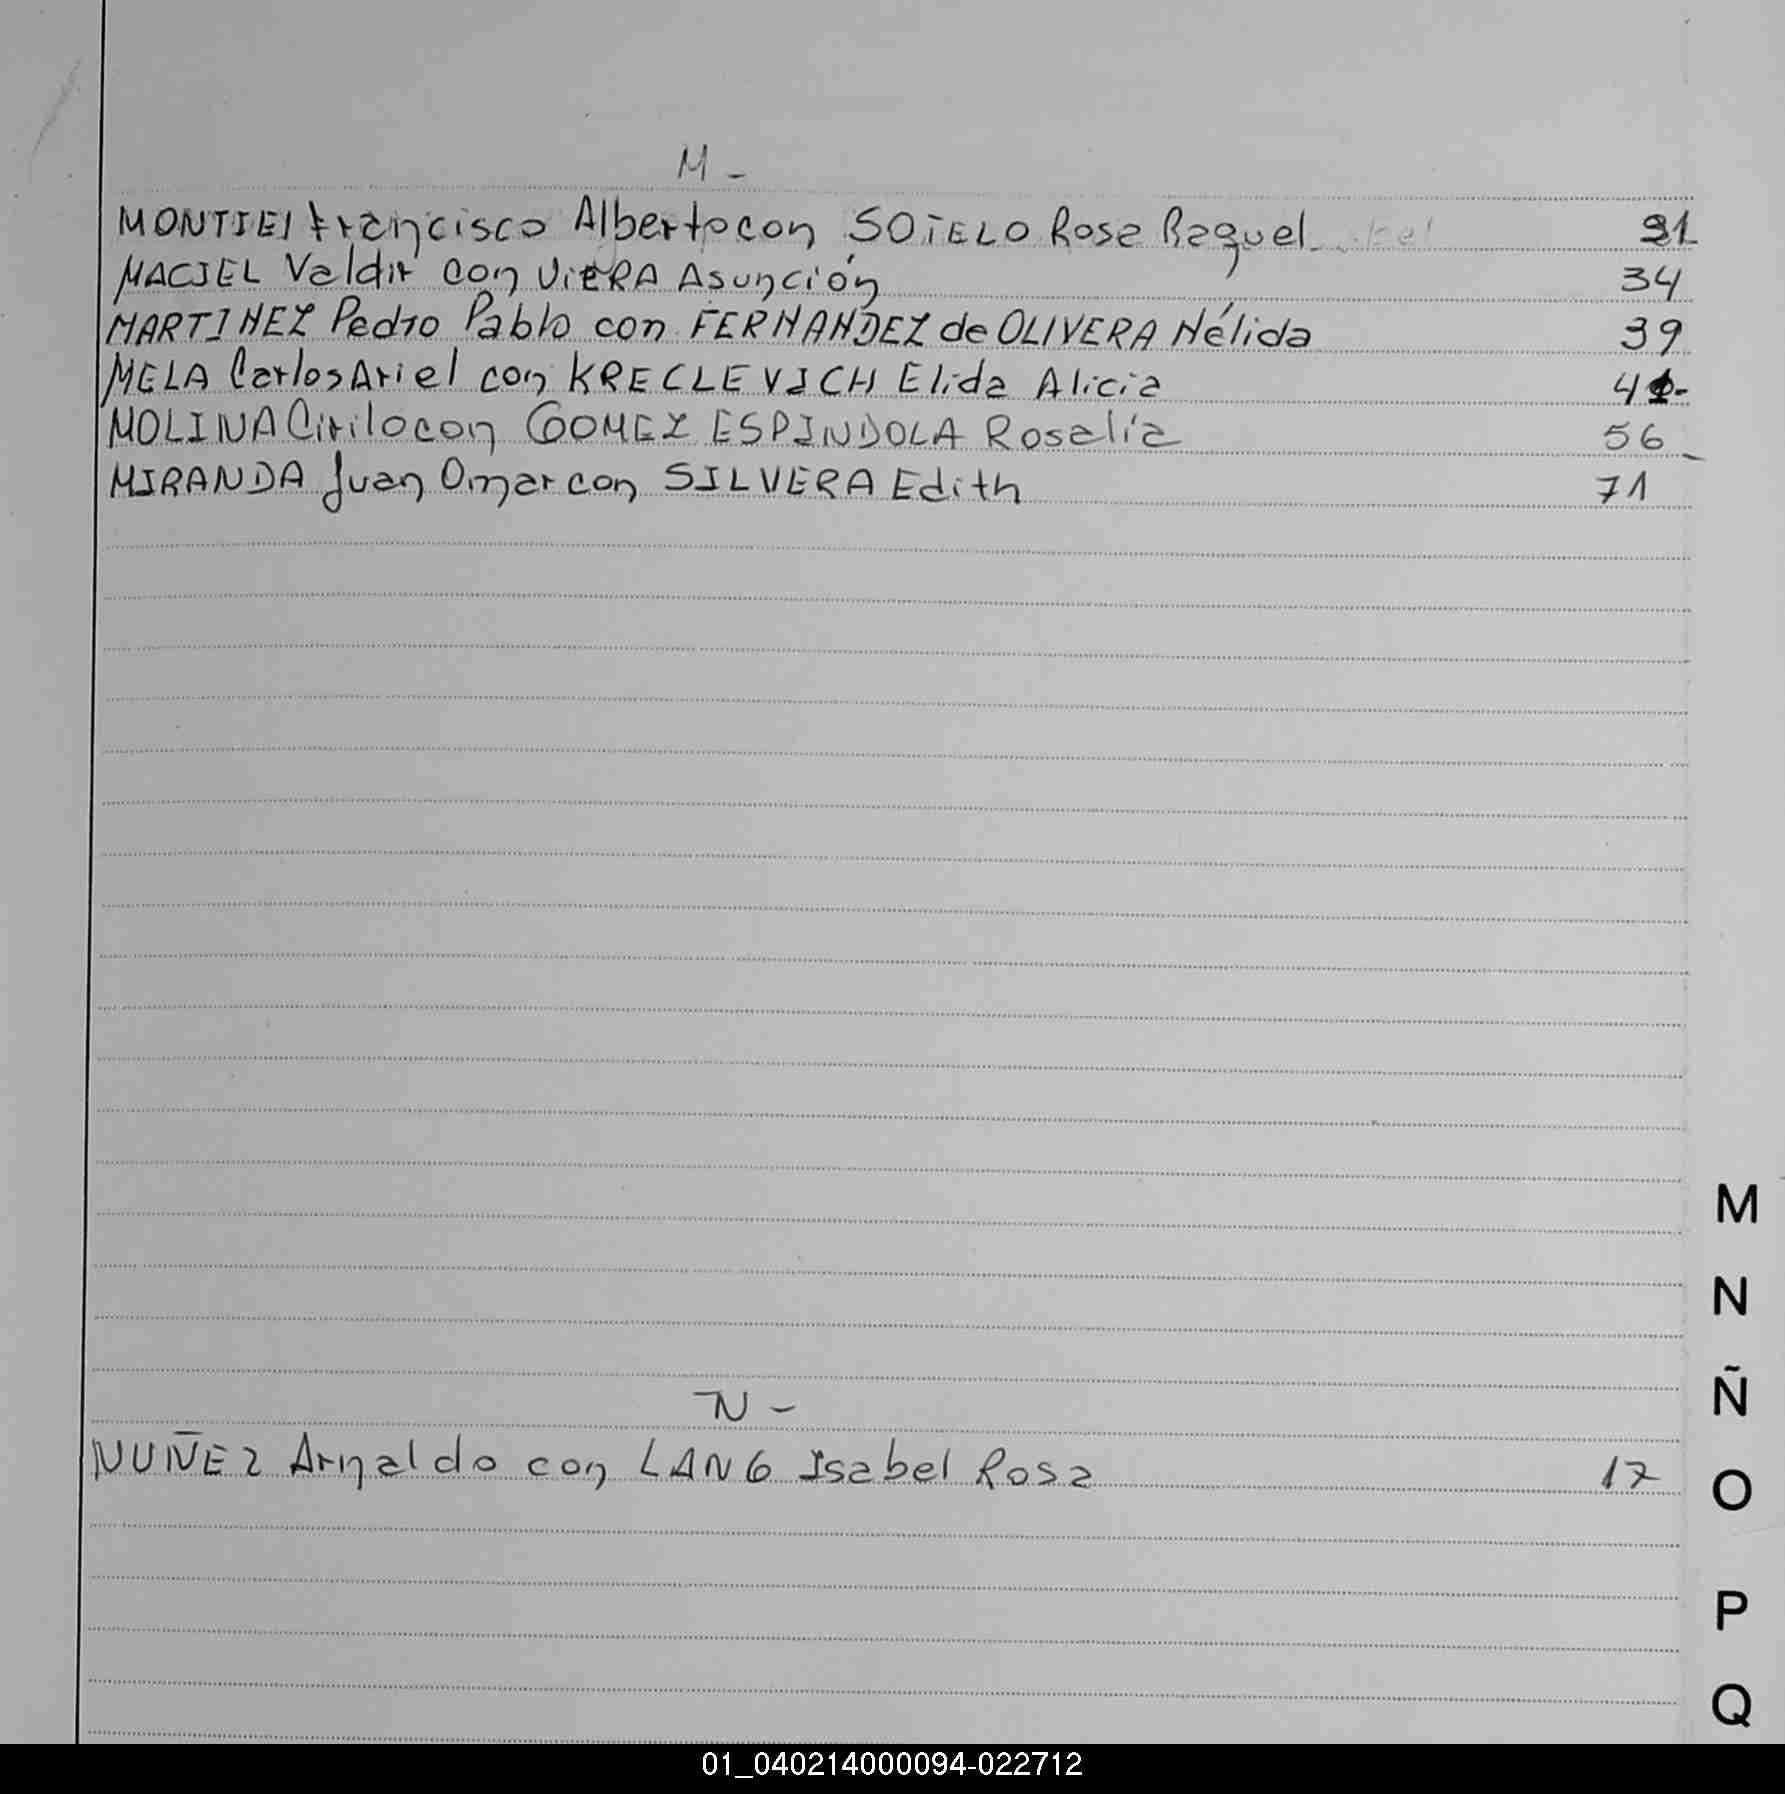 M -
MONTIEl Francisco Alberto con SOTELO Rosa Raquel
MACIEL Valdir con ViERA Asunción 34
MARTINEZ Pedro Pablo con FERNANDEZ de OLIVERA Nélida 39
MELA Carlos Ariel con KRECLEVICH Elida Alicia
MOLINA Cirilo con GOMEZ ESPINDOLA Rosalía 56
MIRANDA Juan Omar con SILVERA Edith 71
M
N
Ñ
N -
NUÑEZ Arnaldo con LANG Isabel Rosa 17
O
P
Q
01_040214000094-022712